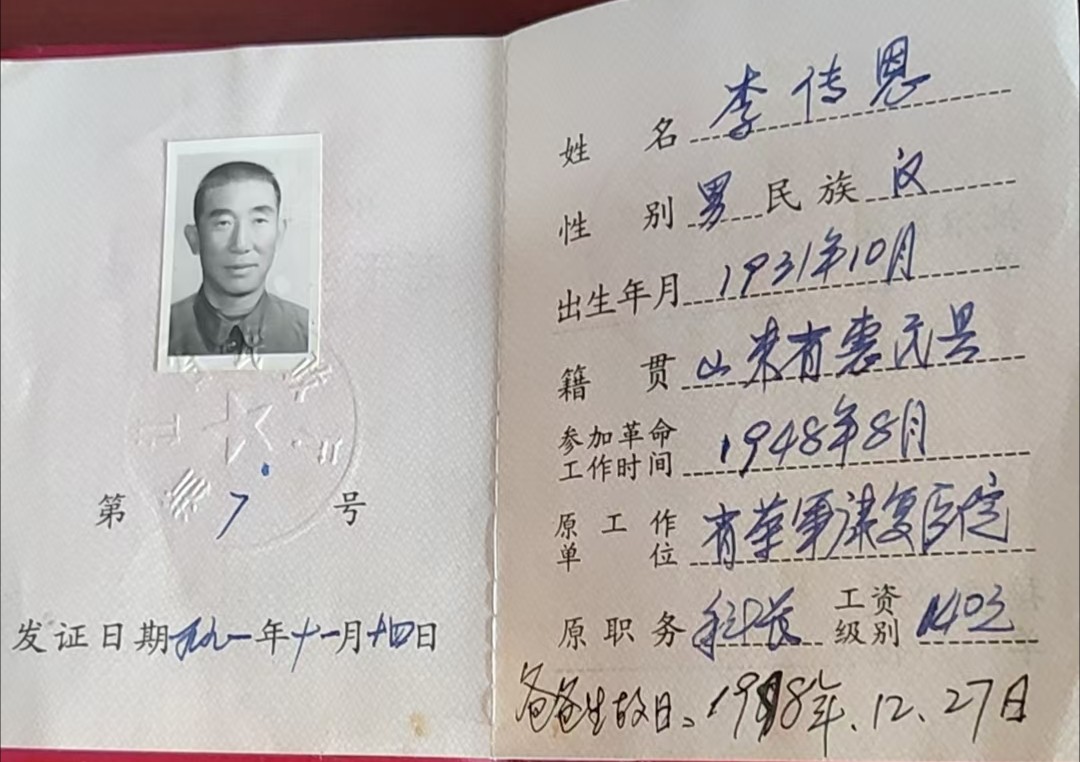 第 7 号
发证日期 九一年十一月十四日
姓名 李传恩
性别 男 民族 汉
出生年月 1931年10月
籍贯 山东省惠民县
参加革命工作时间 1948年8月
原工作单位 省荣军康复医院
原职务 科长 工资级别 140元
爸爸生故日:12.27日